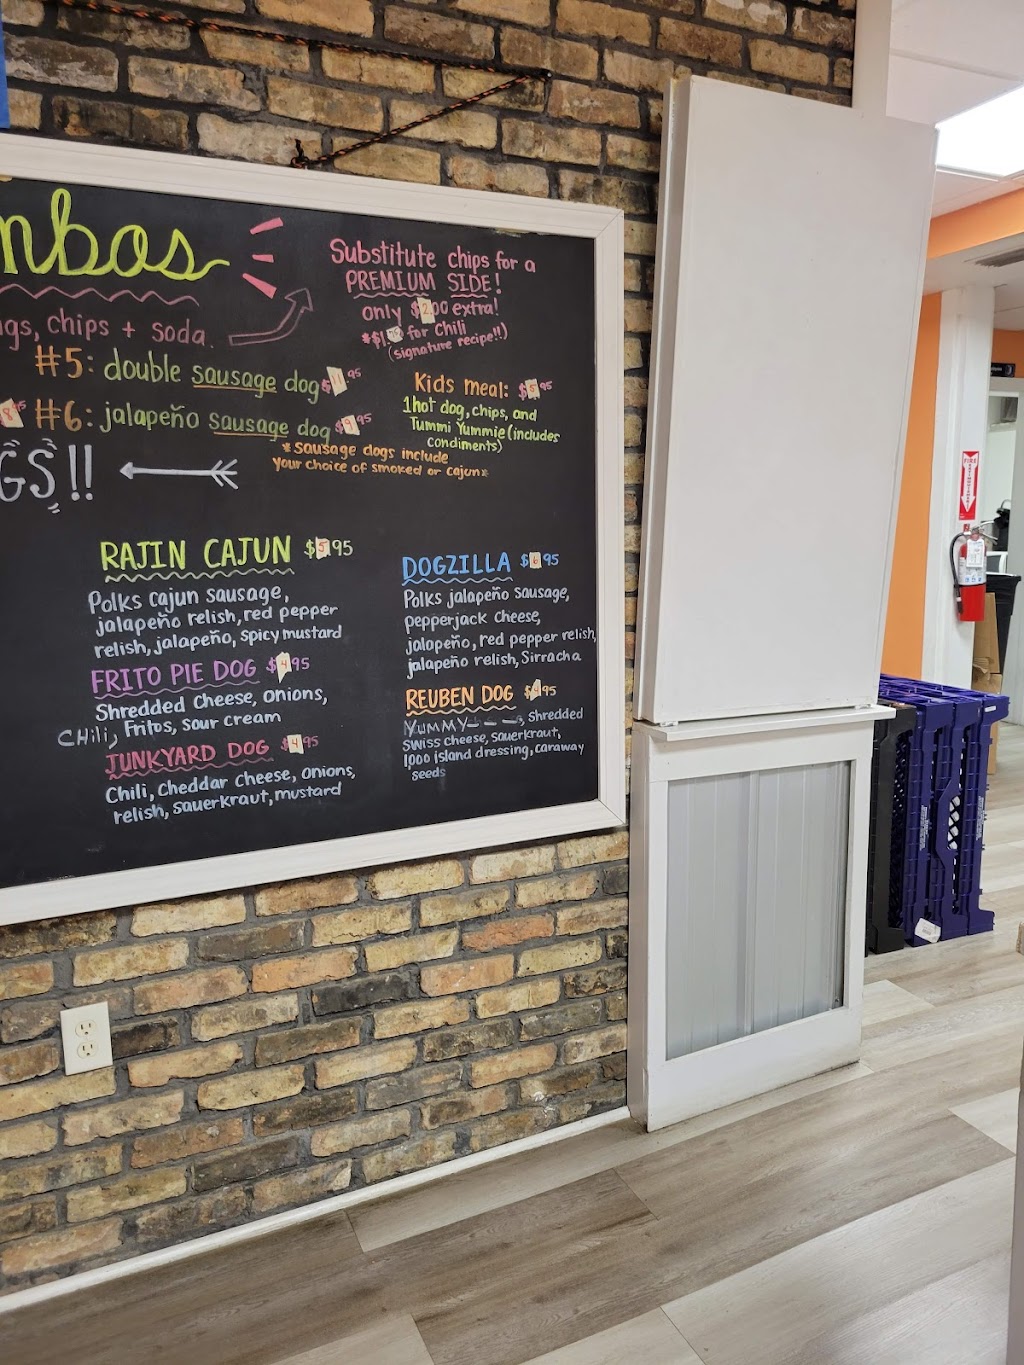 mbos
Substitute chips for a
PREMIUM SIDE!
only $2.00 extra!
for Chili
(signature recipe!!)
chips + soda.
#5: double sausage dog 95
#6: jalapeño sausage dog $9.95
Kids meal: $5.95
1 hot dog, chips, and
Tummi Yummie (includes
condiments)
*Sausage dogs include
your choice of smoked or cajun*
GS!!
RAJIN CAJUN $5.95
Polks cajun sausage,
jalapeño relish, red pepper
relish, jalapeño, spicy mustard
FRITO PIE DOG $4.95
Shredded Cheese, onions,
CHili, Fritos, sour cream
JUNKYARD DOG $4.95
Chili, Cheddar Cheese, onions,
relish, sauerkraut, mustard
DOGZILLA $6.95
Polks jalapeño sausage,
pepperjack cheese,
jalapeño, red pepper relish,
jalapeño relish, Sirracha
REUBEN DOG $4.95
YUMMY shredded
swiss cheese, sauerkraut,
1,000 island dressing, caraway
seeds
FIRE